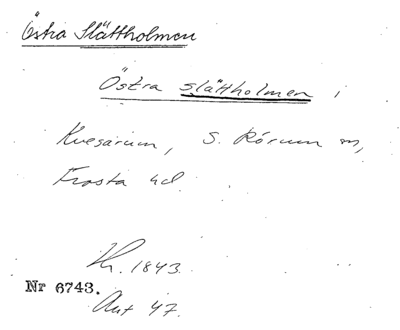 Östra Slättholmen
Östra slättholmen i
Kvesarum, S. Rörum sn,
Frosta hd.
Kr. 1843.
Nr 6743.
Akt 47.